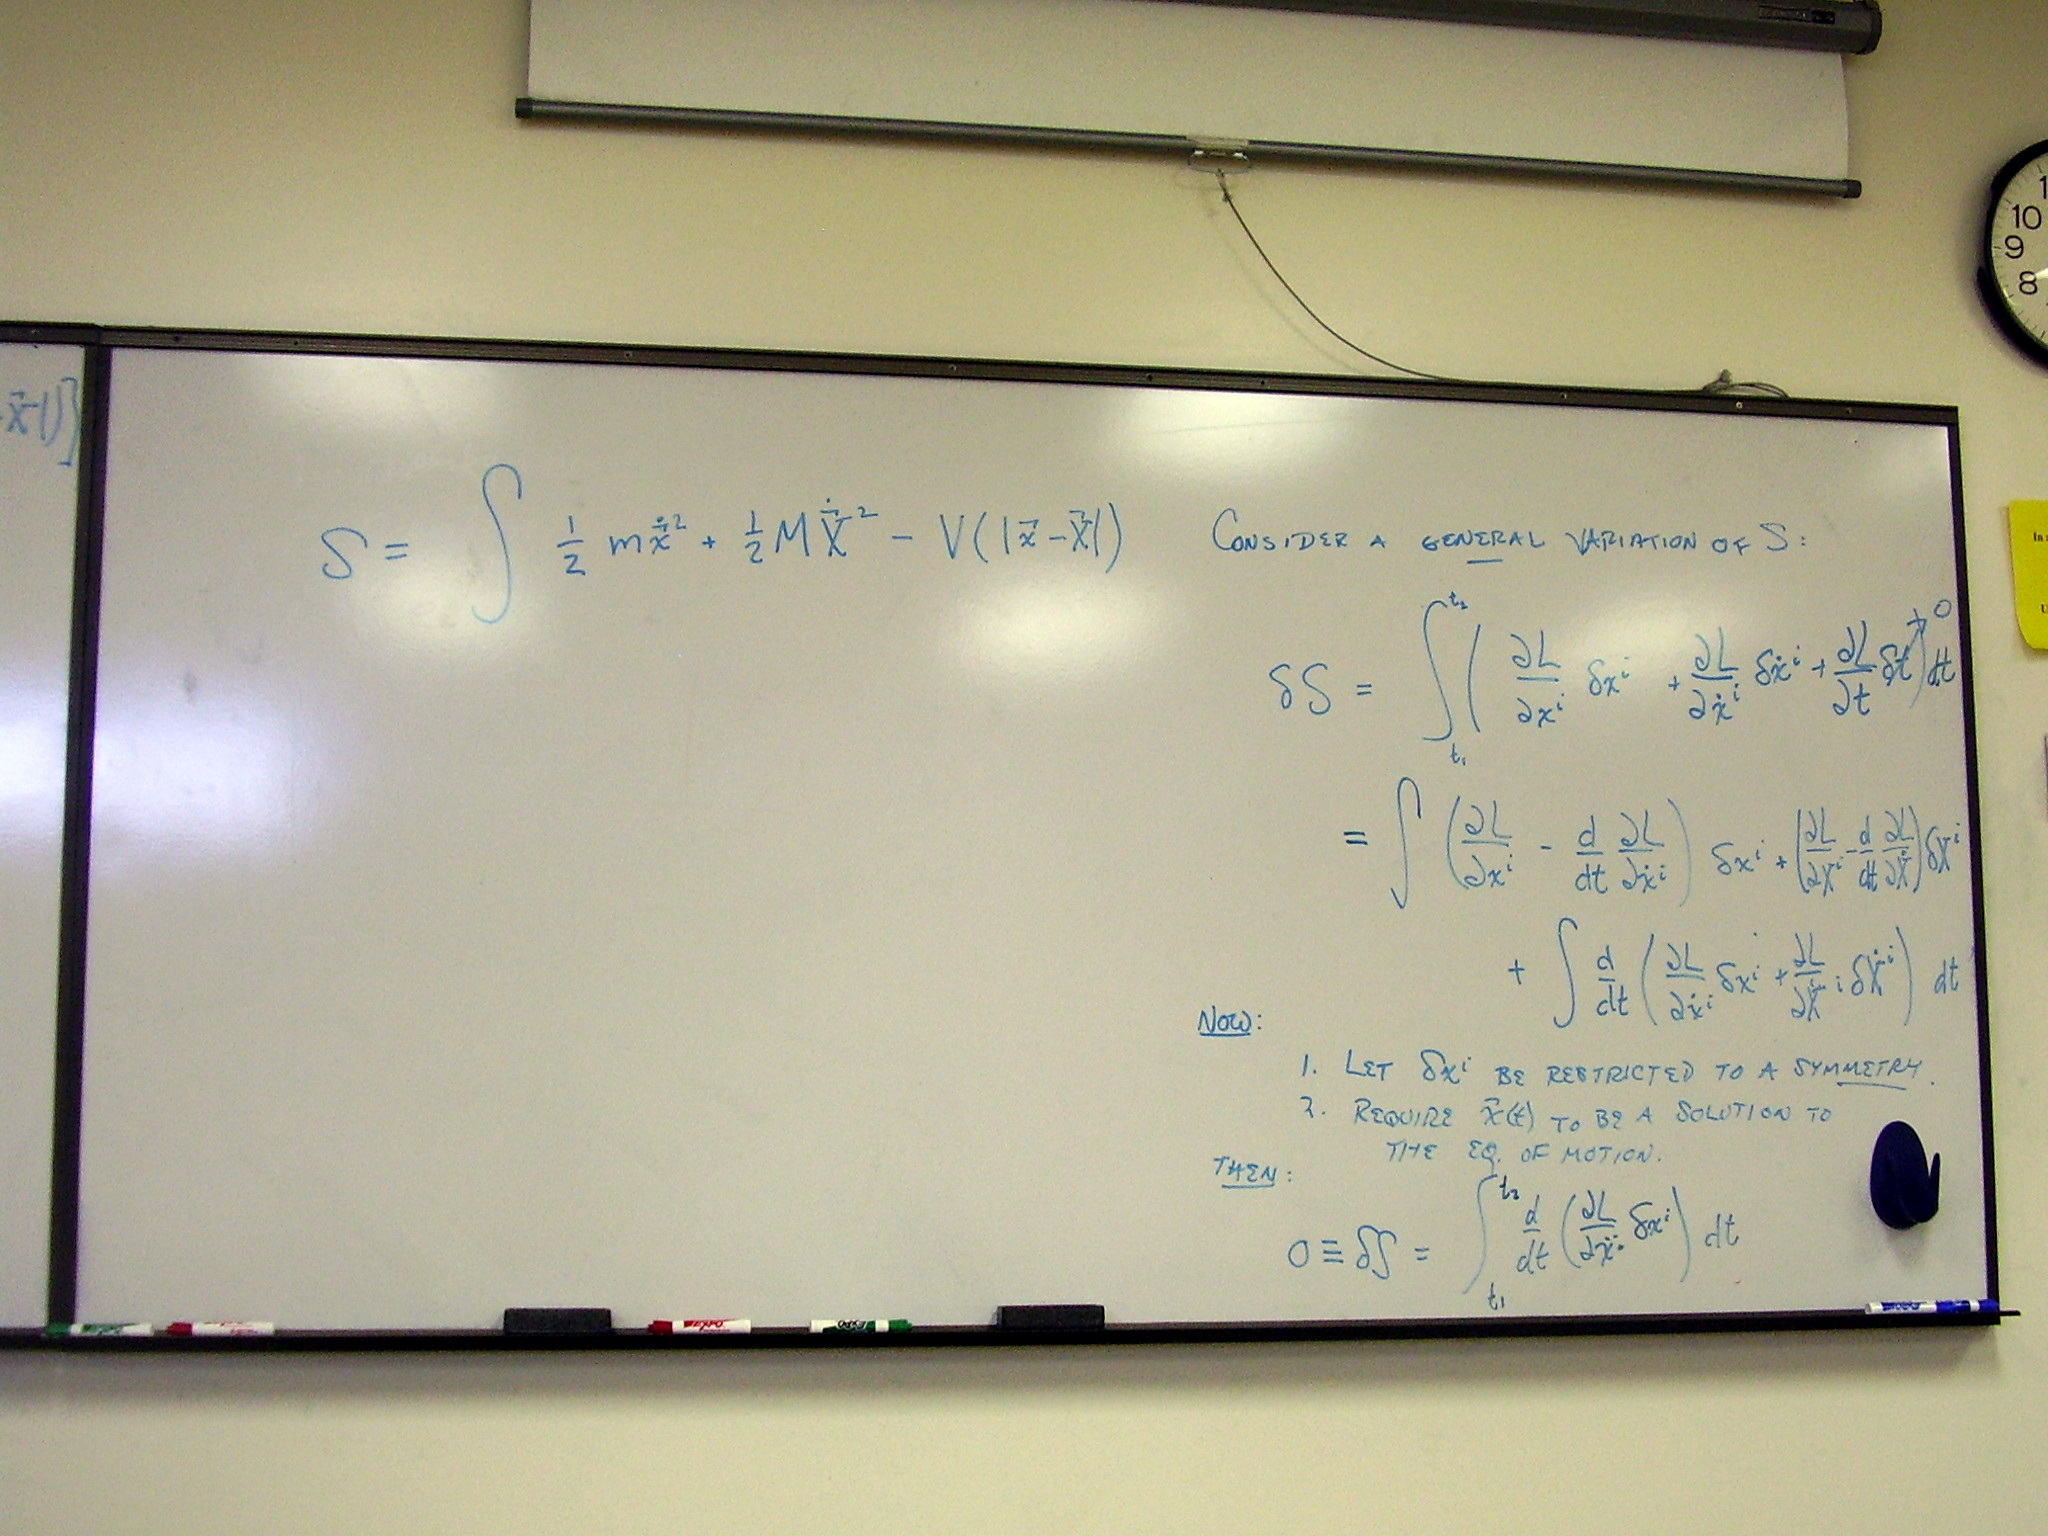 x⃗|)]
S = ∫ ½ m ẋ⃗² + ½ M Ẋ⃗² − V(|x⃗ − X⃗|)
CONSIDER A GENERAL VARIATION OF S:
δS = ∫_{t₁}^{t₂} ( ∂L/∂xⁱ δxⁱ + ∂L/∂ẋⁱ δẋⁱ + ∂L/∂t δt ↗0 ) dt
= ∫ ( ∂L/∂xⁱ − d/dt ∂L/∂ẋⁱ ) δxⁱ + ( ∂L/∂Xⁱ − d/dt ∂L/∂Ẋ ) δXⁱ
+ ∫ d/dt ( ∂L/∂ẋⁱ δxⁱ + ∂L/∂Ẋⁱ δẊⁱ ) dt
NOW:
1. LET δxⁱ BE RESTRICTED TO A SYMMETRY.
2. REQUIRE x⃗(t) TO BE A SOLUTION TO
THE EQ. OF MOTION.
THEN:
0 ≡ δS = ∫_{t₁}^{t₂} d/dt ( ∂L/∂ẋⁱ δxⁱ ) dt
1
10
9
8
In
U
EXPO
EXPO